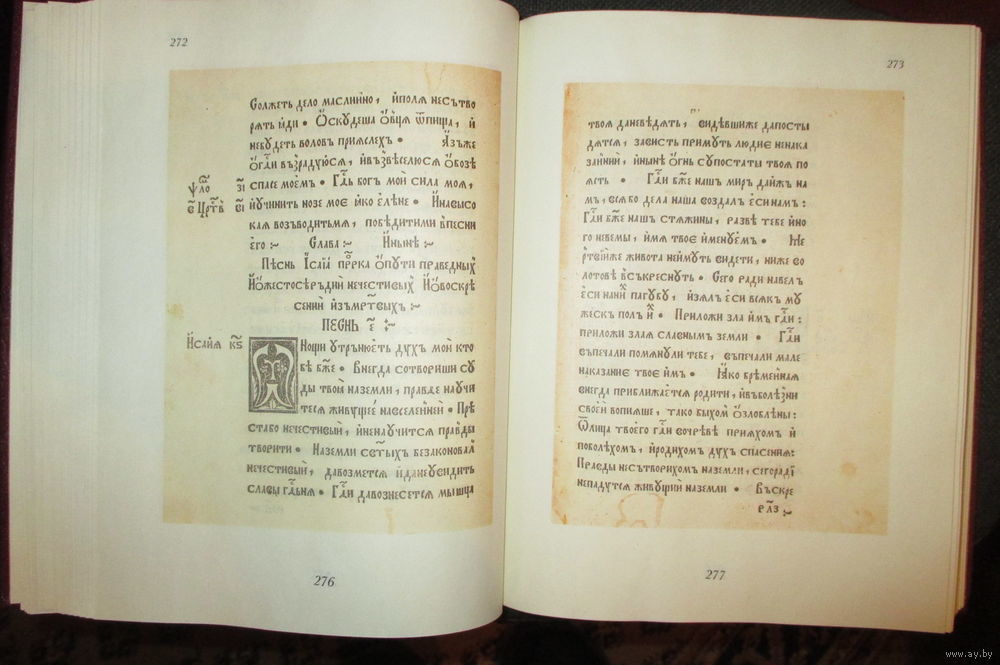 272
Солжеть дело маслиⷩ҇но, и҆поля несътво
рять ꙗ҆ди • Ѻ҆скудеша ѻ҆вця ѿпища, и҆
небудеть воловъ приꙗслехъ • А҆зъже
ѻ҆г҃ди възрадуюся, и҆възвеселюся ѻ҆бозѣ
спасе моемъ • Гд҃ь богъ мой сила моя,
и҆учинить нозе мое ꙗко е҆лѣне • И҆навысо
кая возводитьмя, побѣдитими впесни
е҆го :~ Слава :~ И҆нынѣ :~
Пѣснь І҆саі҆а про҃рка ѻ҆пути праведныхъ
И҆ѻ҆жестосѣръдии нечестивыхъ И҆ѻ҆воскрѣ
сении и҆зъмр҃твыхъ :~
ПЕСНЬ е҃ :~
И҆сайя кѕ҃
Нощи утрьнюеть духъ мой кто
бѣ бж҃е • Внегда сотвориши су
ды твоя наземли, правде научи
теся живущеѐ навселенней • Прѣ
стабо нечестивый, и҆ненаучится правды
творити • Наземли свет҃ыхъ безаконовал
нечестивый, давозмется и҆данеувидить
славы гд҃ьня • Гд҃и давознесется мышца
276
273
твоя даневѣдять, видѣвшиже дапосты
дятся, зависть примуть людие ненака
занини, и҆нынѣ ѻ҆гнь супостаты твоя по
ꙗсть • Гд҃и бж҃е нашъ миръ дайжъ на
мъ, вся бо дела наша воздалъ е҆си намъ :
Гд҃и бж҃е нашъ стяжины, развѣ тебе и҆но
го невемы, и҆мя твое и҆менуемъ • Ме
ртвииже живота неймуть видети, ниже во
лотовѣ въсъкреснуть • Сего ради навелъ
е҆си нани пагубу, и҆зялъ е҆си всякъ му
жескъ полъ и҆ • Приложи зла и҆мъ гд҃и :
приложи злая славнымъ земли • Гд҃и
въпечали помянули тебе, въпечали мале
наказание твое и҆мъ • Ꙗко брѣменная
внегда приближается родити, и҆въболѣзни
своей вопияше, тако быхом ѻ҆злоблены :
Ѿлица твоего гд҃и вочревѣ прияхомъ и҆
поболѣхомъ, и҆родихом духъ спасения :
Правды несътворихом наземли, сегоради
непадутся живущий наземли • Въскре
277
www.ay.by